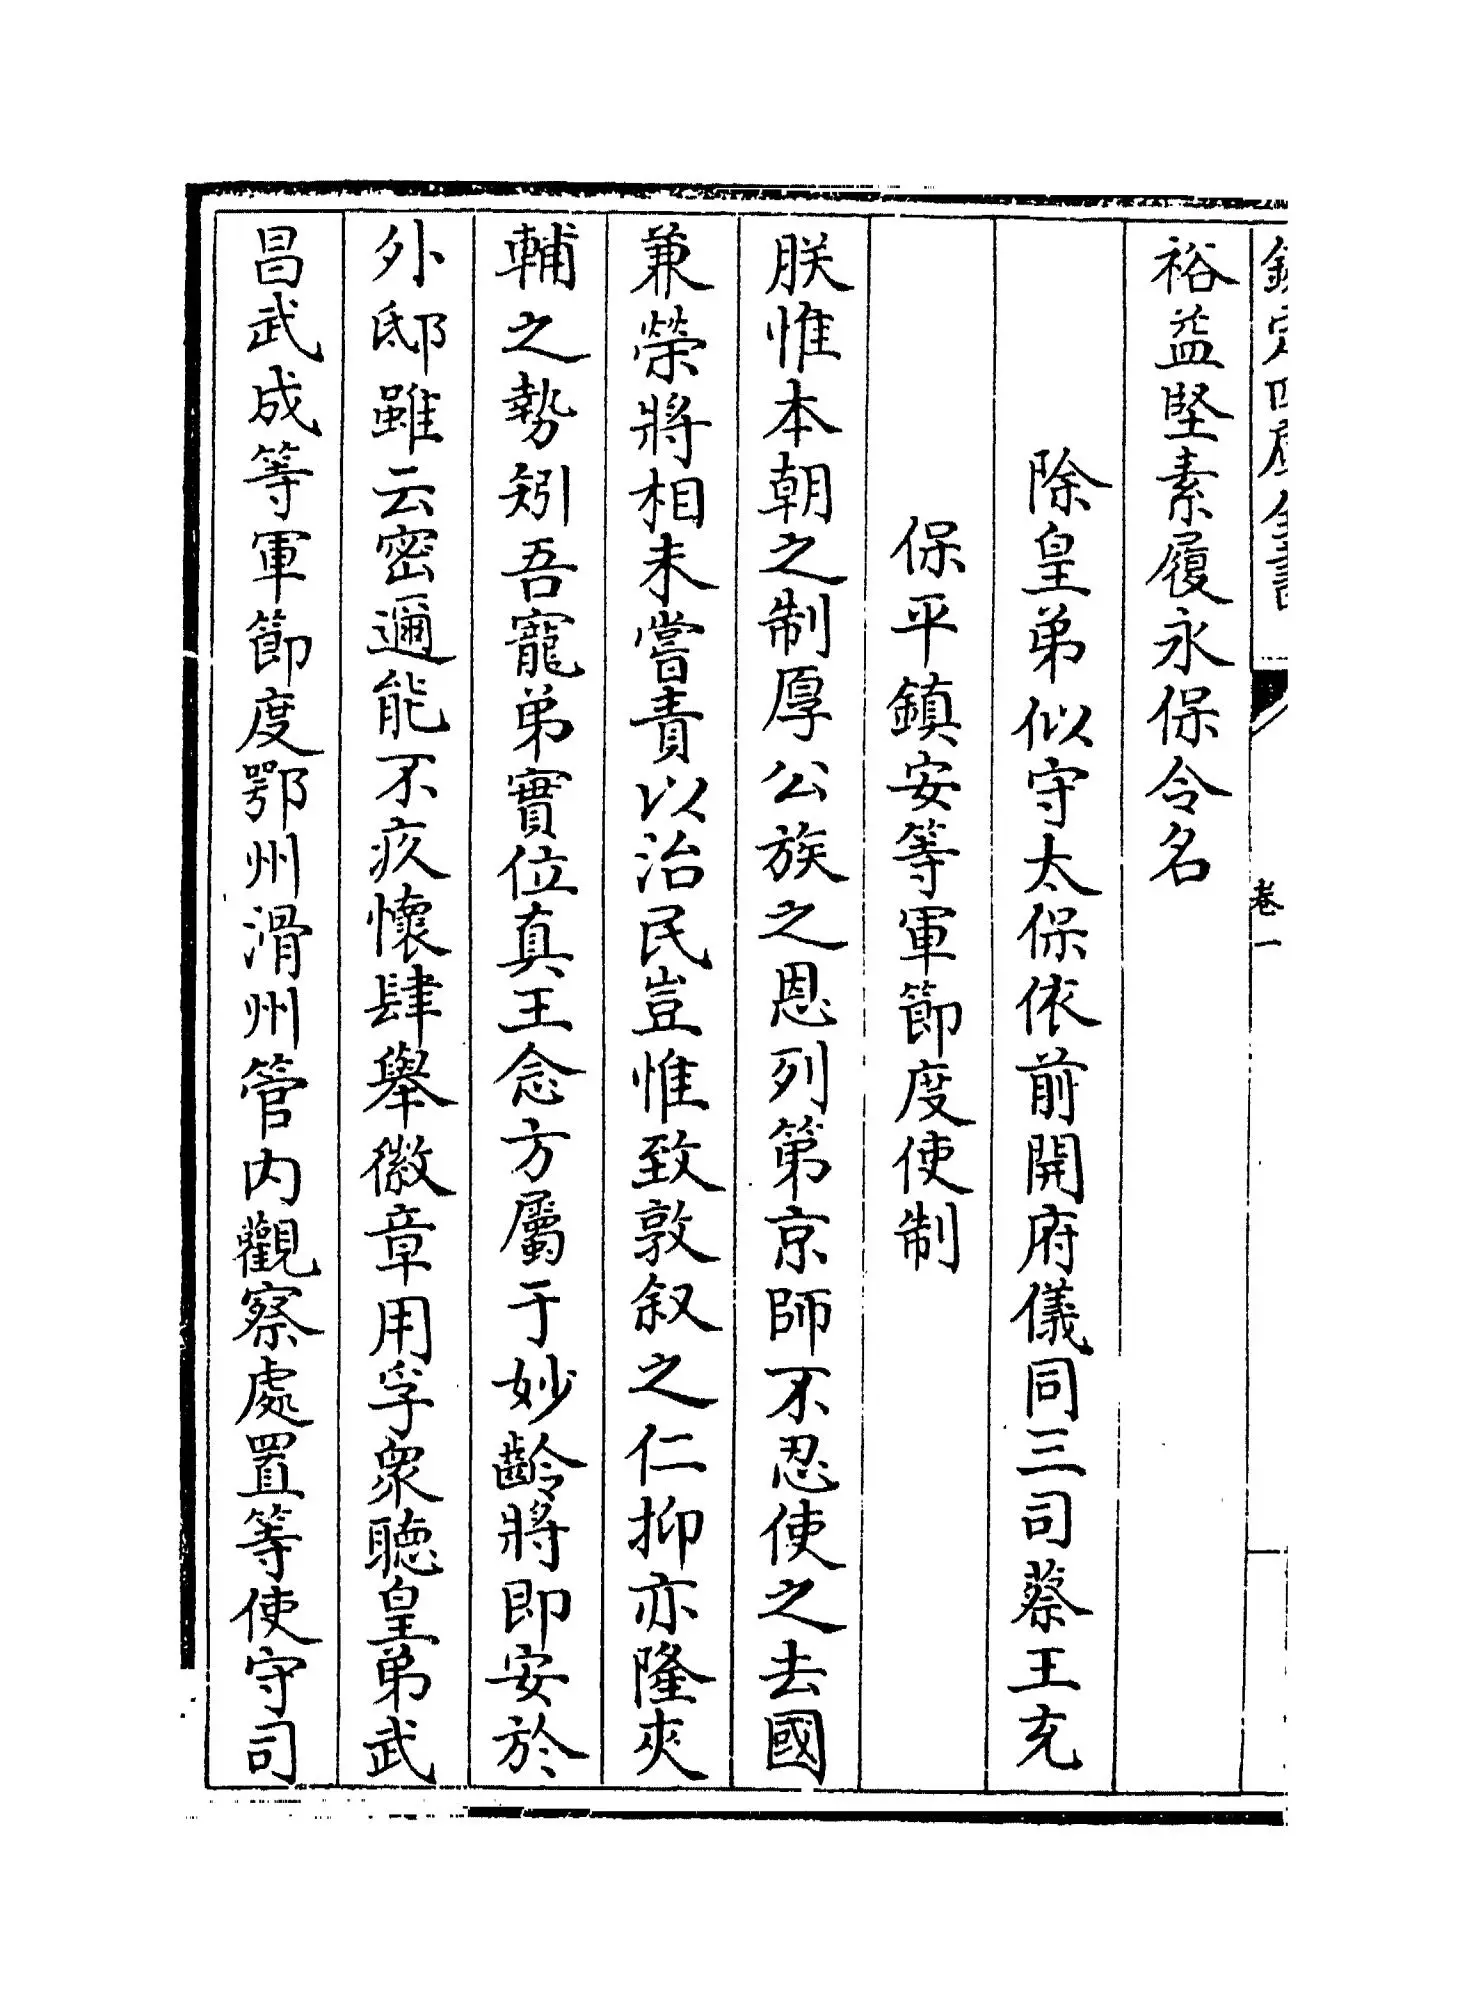 欽定四庫全書
卷一
裕益堅素履永保令名
除皇弟似守太保依前開府儀同三司蔡王充
保平鎮安等軍節度使制
朕惟本朝之制厚公族之恩列第京師不忍使之去國
兼榮將相未嘗責以治民豈惟致敦叙之仁抑亦隆夾
輔之勢矧吾寵弟實位真王念方屬于妙齡將即安於
外邸雖云密邇能不疚懷肆舉徽章用孚衆聽皇弟武
昌武成等軍節度鄂州滑州管内觀察處置等使守司